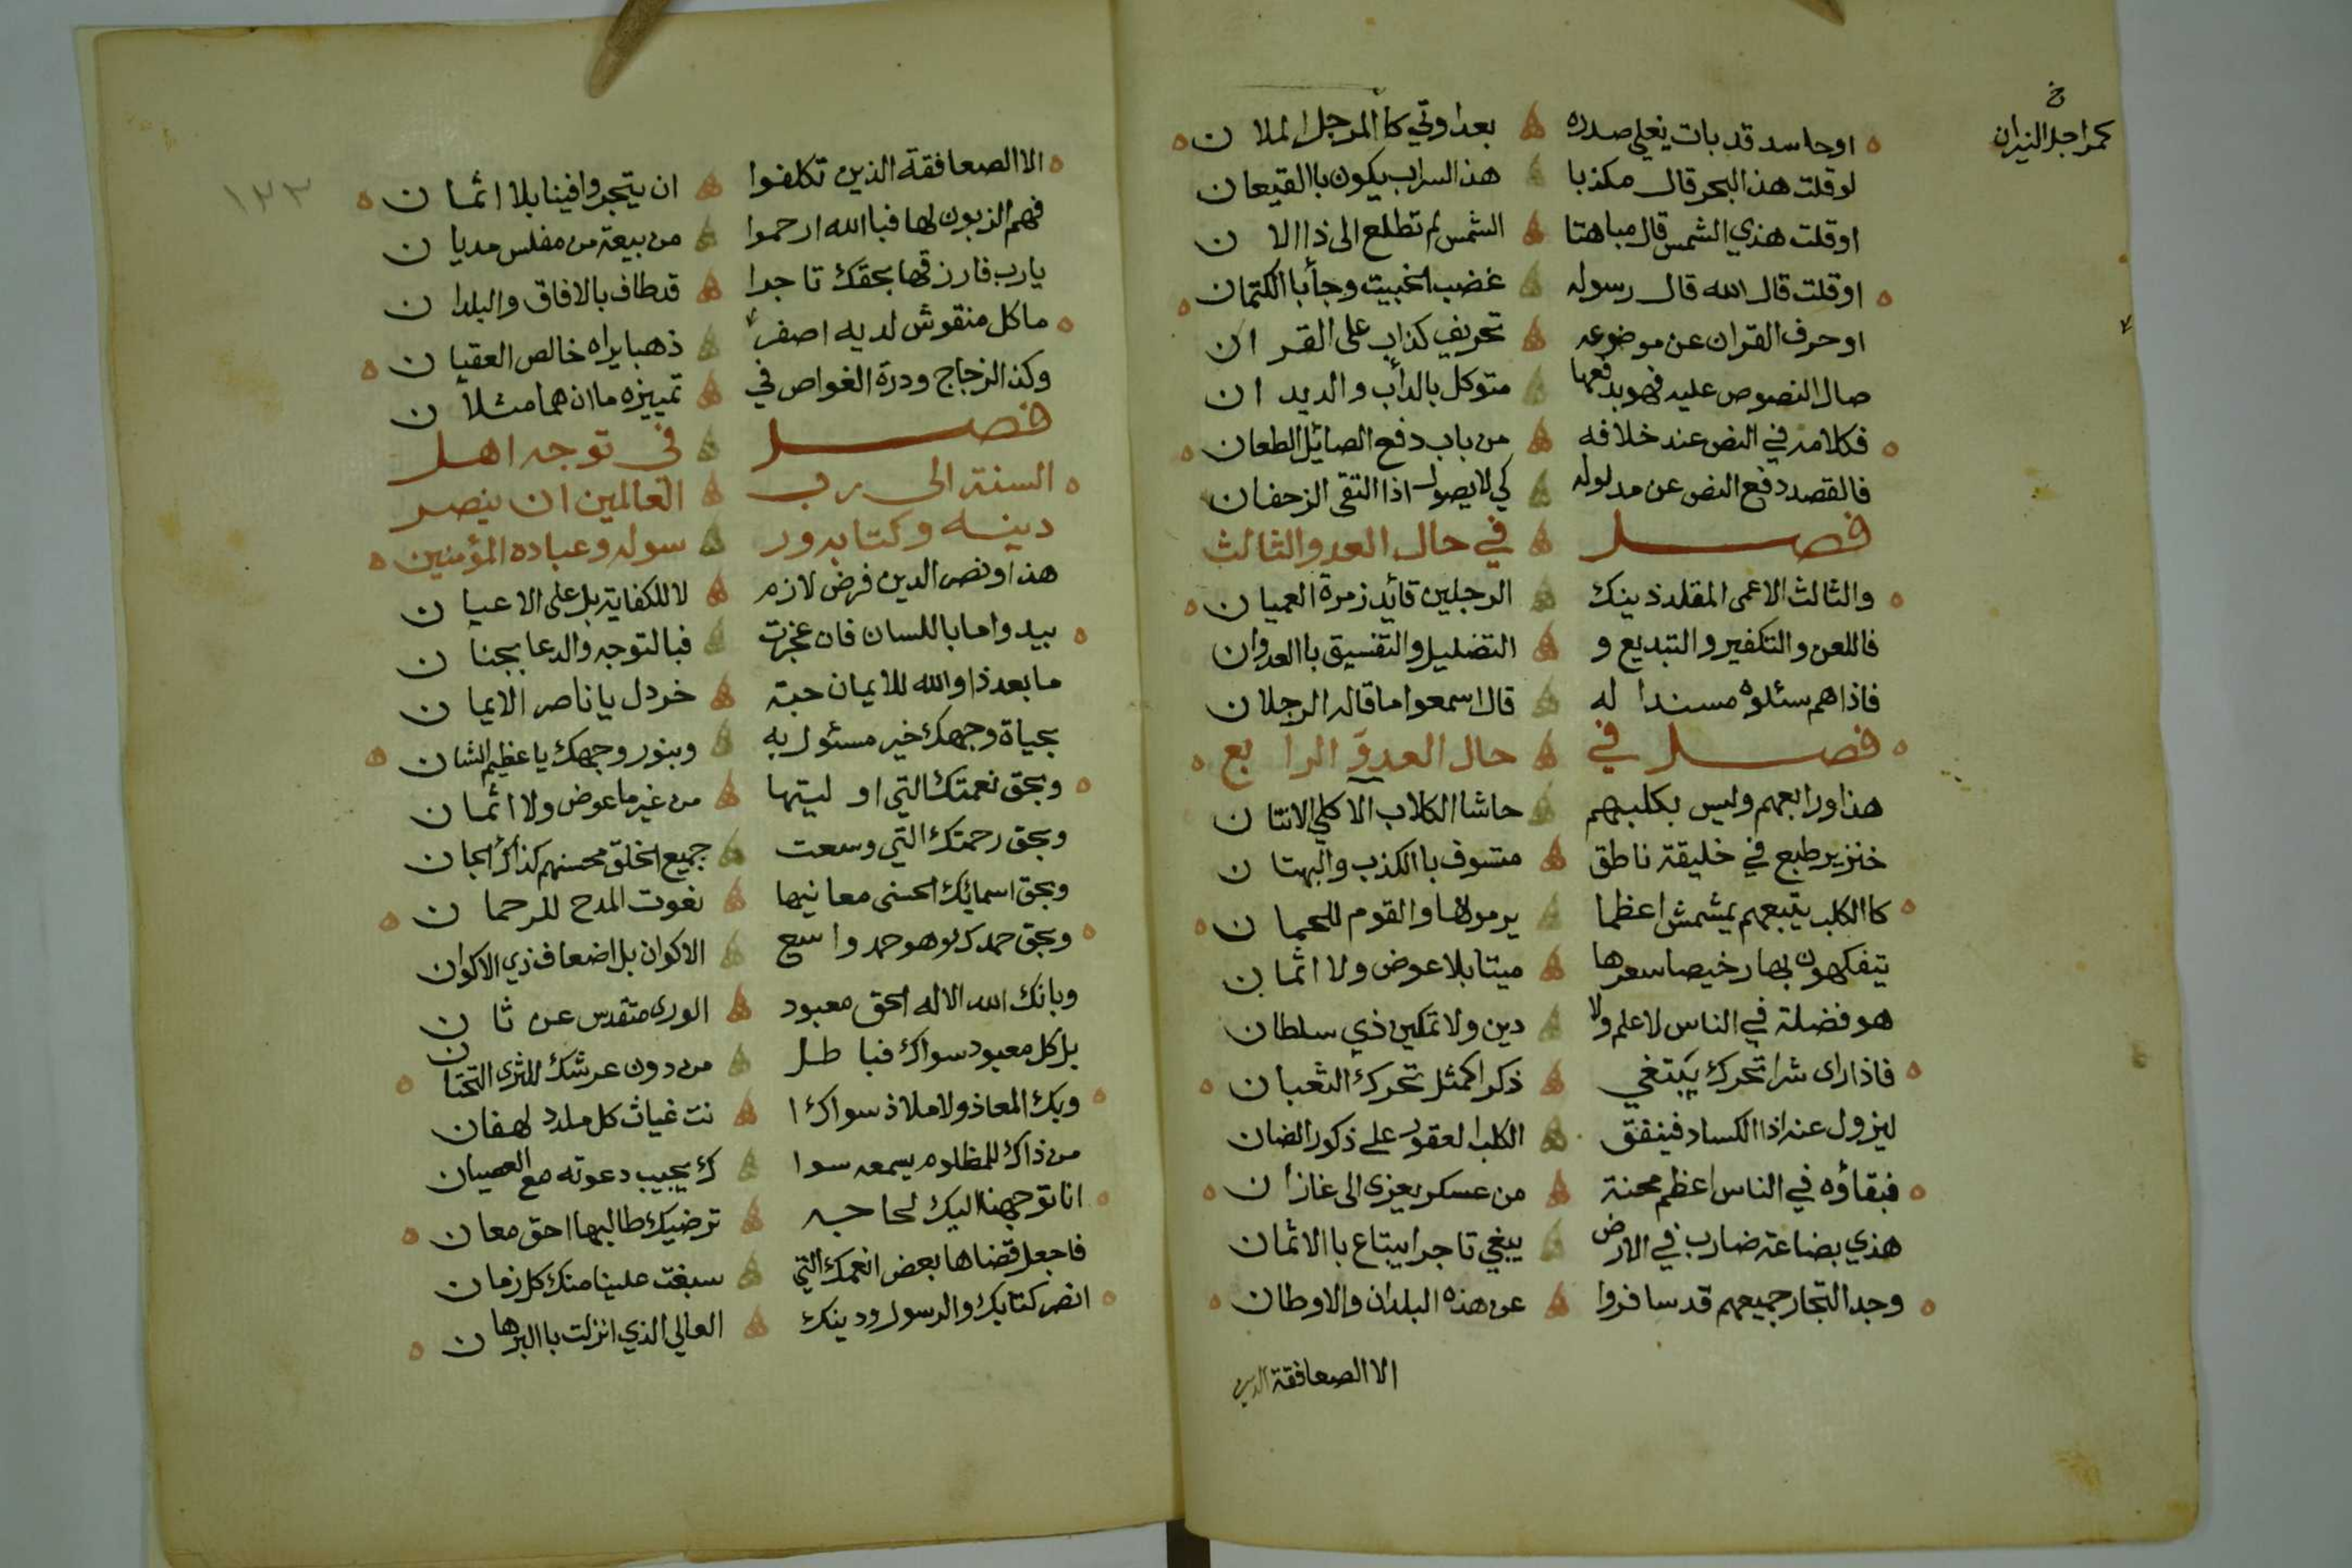 خ
كمراجل النيران
اوحاسد قد بات يغلي صدره بعداوتي كا المرجل الملان
لوقلت هذا البحر قال مكذبا هذا السراب يكون باالقيعان
اوقلت هذي الشمس قال مباهتا الشمس لم تطلع الى ذا الان
اوقلت قال الله قال رسوله غضب الخبيث وجأ باالكتمان
اوحرف القران عن موضوعه تحريف كذاب على القران
صال النصوص عليه فهو بدفعها متوكل بالدأب والديدان
فكلامه في النص عند خلافه من باب دفع الصائل الطعان
فالقصد دفع النص عن مدلوله كي لا يصول اذا التقى الزحفان
فصل في حال العدو الثالث
والثالث الاعمى المقلد ذينك الرجلين قائد زمرة العميان
فاللعن والتكفير والتبديع و التضليل والتفسيق باالعدوان
فاذا هم سئلوه مسندا له قال اسمعوا ما قاله الرجلان
فصل في حال العدو الرابع
هذا ورابعهم وليس بكلبهم حاشا الكلاب الاكلي الانتان
خنزير طبع في خليقة ناطق متسوف باالكذب والبهتان
كا الكلب يتبعهم يمشمش اعظما يرمونها والقوم للحمان
يتفكهون بها رخيصا سعرها ميتا بلا عوض ولا اثمان
هو فضلة في الناس لا علم ولا دين ولا تمكين ذي سلطان
فاذا راى شرا تحرك يبتغي ذكرا كمثل تحرك الثعبان
ليزول عنه اذا الكساد فينفق الكلب العقور على ذكور الضان
فبقاؤه في الناس اعظم محنة من عسكر يعزى الى غازان
هذي بضاعة ضارب في الارض يبغي تاجرا يبتاع باالاثمان
وجد التجار جميعهم قد سافروا عن هذه البلدان والاوطان
الا الصعافقة الذين
١٣٣
الا الصعافقة الذين تكلفوا ان يتجروا فينا بلا اثمان
فهم الزبون لها فبا الله ارحموا من بيعة من مفلس مديان
يارب فارزقها بحقك تاجرا قد طاف بالافاق والبلدان
ما كل منقوش لديه اصفر ذهبا يراه خالص العقيان
وكذا الزجاج ودرة الغواص في تمييزه ما ان هما مثلان
فصل في توجه اهل
السنة الى رب العالمين ان ينصر
دينه وكتابه ور سوله وعباده المؤمنين
هذا ونصر الدين فرض لازم لا للكفاية بل على الاعيان
بيد واما باللسان فان عجزت فبا لتوجه والدعا بجنان
ما بعد ذا والله للايمان حبة خردل يا ناصر الايمان
بحياة وجهك خير مسئول به وبنور وجهك يا عظيم الشان
وبحق نعمتك التي اوليتها من غير ما عوض ولا اثمان
وبحق رحمتك التي وسعت جميع الخلق محسنهم كذاك الجان
وبحق اسمائك الحسنى معانيها نعوت المدح للرحمان
وبحق حمدك وهو حمد واسع الاكوان بل اضعاف ذي الاكوان
وبانك الله الاله الحق معبود الورى متقدس عن ثان
بل كل معبود سواك فباطل من دون عرشك للثرى التحتان
وبك المعاذ ولا ملاذ سواك ا نت غياث كل ملدد لهفان
من ذاك للمظلوم يسمعه سوا ك يجيب دعوته مع العصيان
انا توجهنا اليك لحاجه ترضيك طالبها احق معان
فاجعل قضاها بعض انعمك التي سبغت علينا منك كل زمان
انصر كتابك والرسول ودينك العالي الذي انزلت با البرهان